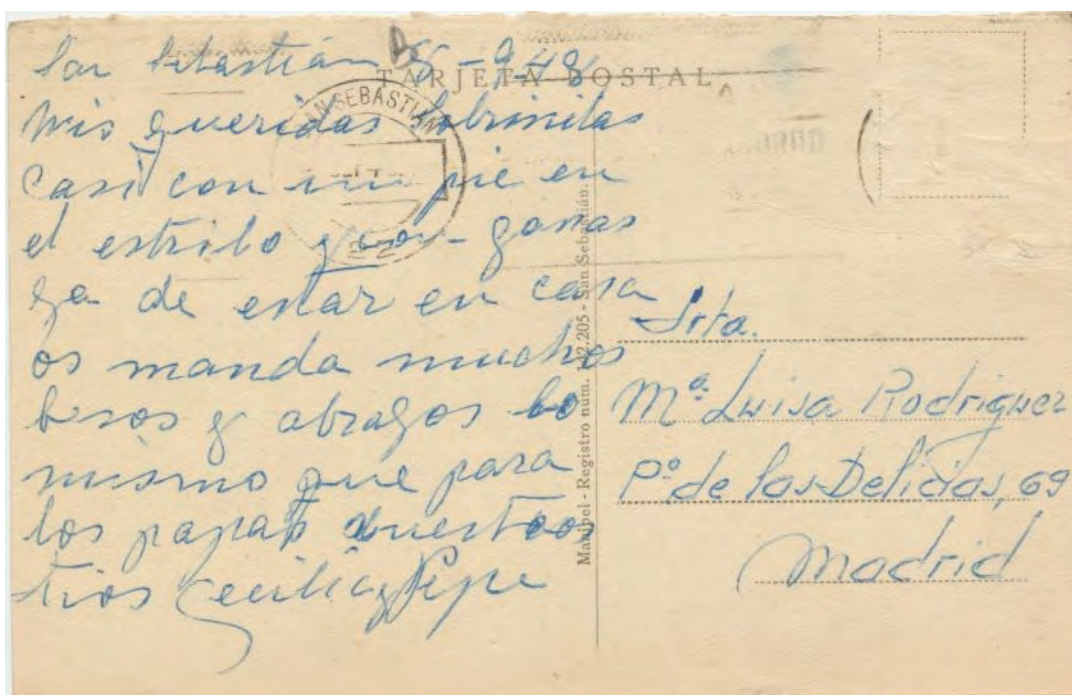 San Sebastián 6-9-48
TARJETA POSTAL
SAN SEBASTIAN
Mis queridas sobrinitas
Casi con un pie en
el estribo y con ganas
ya de estar en casa
os manda muchos
besos y abrazos lo
mismo que para
los papas vuestros
tios Cecilia y Pepe
Manipel - Registro núm. 112.205 - San Sebastián.
Srta.
Mª. Luisa Rodriguez
Pº de las Delicias, 69
Madrid